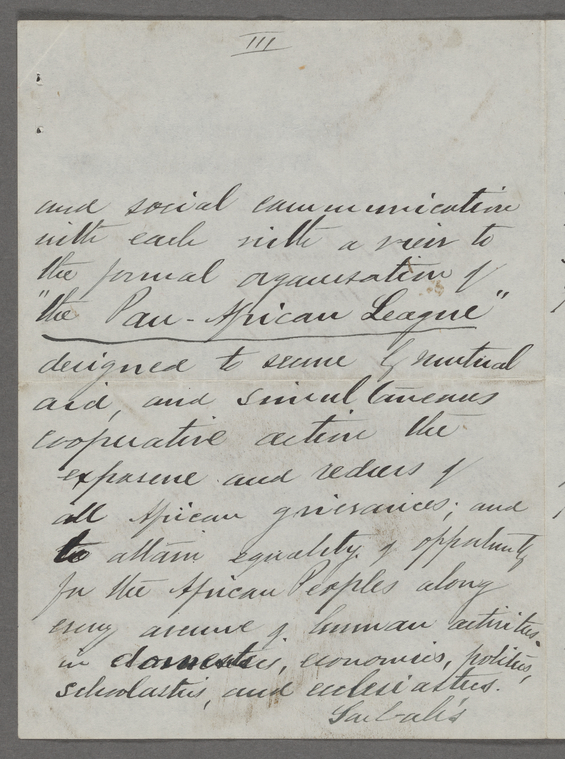 III
and social communication
with each with a view to
the formal organisation of
"the Pan-African League"
designed to secure by mutual
aid, and simultaneous
cooperative action the
exposure and redress of
all African grievances; and
to attain equality of opportunity
for the African Peoples along
every avenue of human activities.
in domestics, economics, politics,
scholastics, and ecclesiastics.